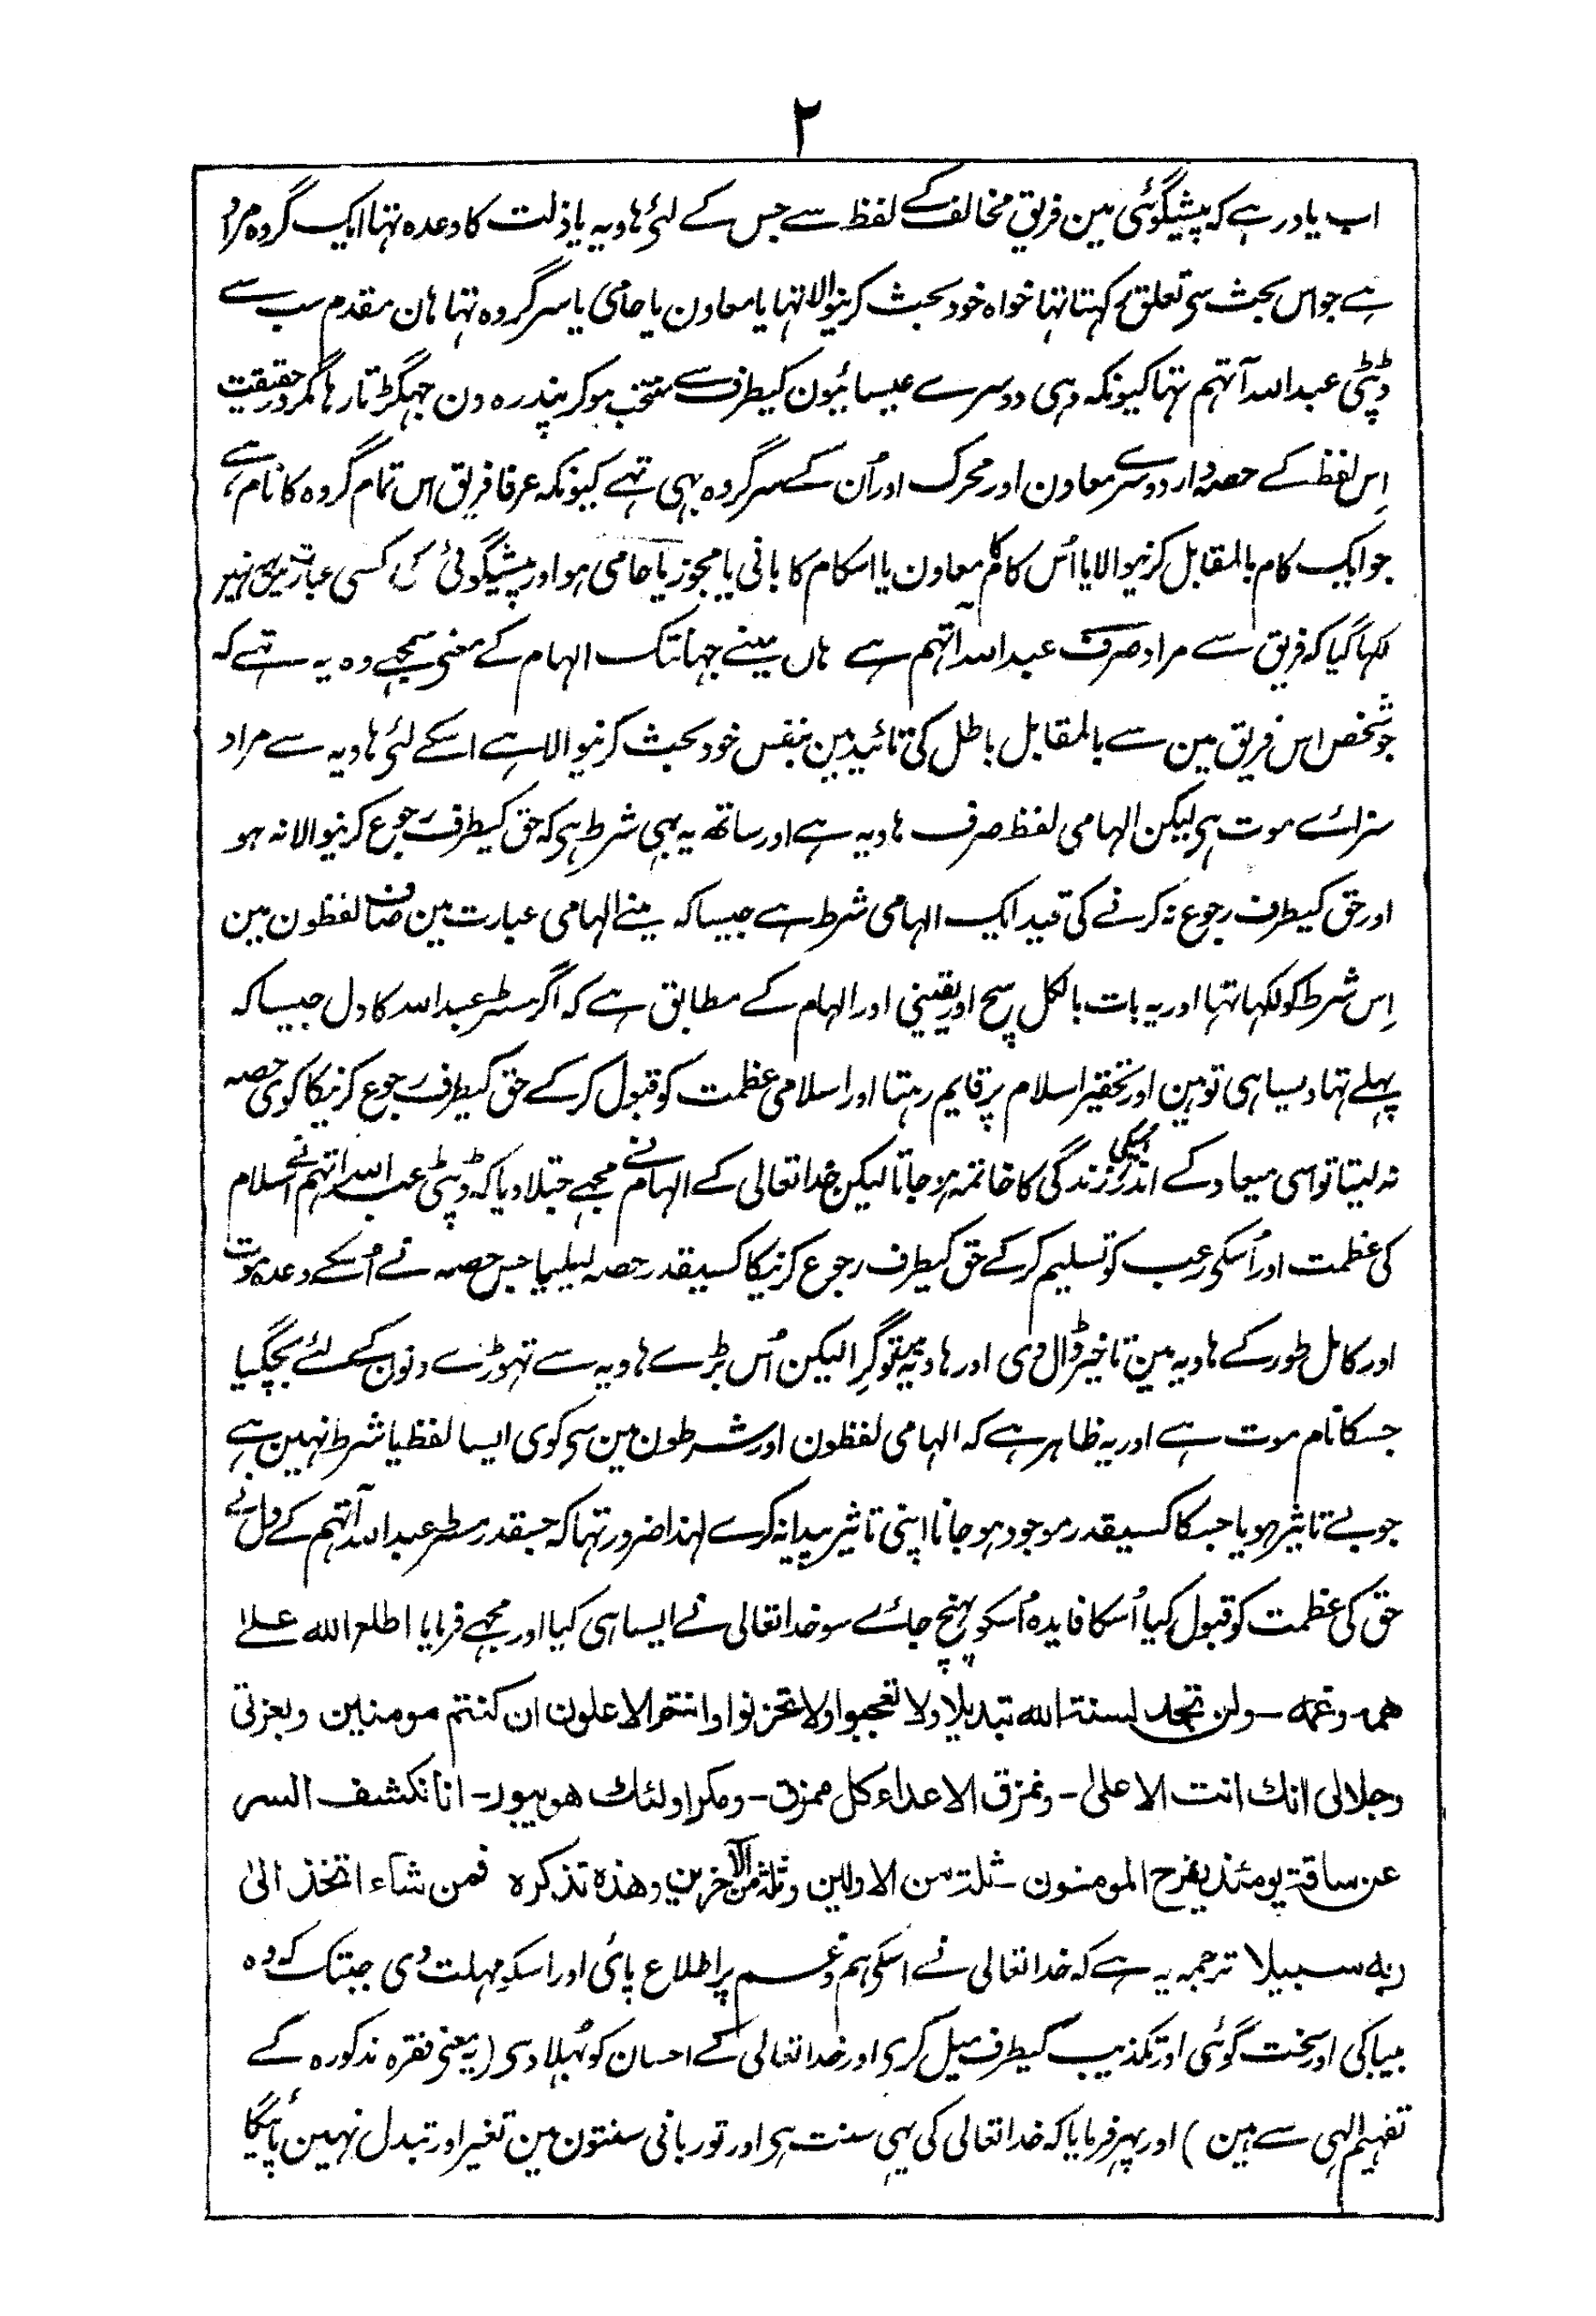 ۲
اب یاد رہے کہ پیشگوئی مین فریق مخالف کے لفظ سے جس کے لئی ہاویہ یا ذلت کا وعدہ تہا ایک گروہ مراد
ہے جو اس بحث سی تعلق رکہتا تہا خواہ خود بحث کرنیوالا تہا یا معاون یا حامی یا سرگروہ تہا ہان مقدم سب سے
ڈپٹی عبداللہ آتہم تہا کیونکہ وہی دوسرے عیسائیون کیطرف سے منتخب ہو کر پندرہ دن جہگڑتا رہا مگر درحقیقت
اِس لفظ کے حصہ دار دوسرے معاون اور محرک اور اُن کے سرگروہ بہی تہے کیونکہ عرفا فریق اس تمام گروہ کا نام ہے،
جو ایک کام بالمقابل کرنیوالا یا اُس کام کا معاون یا اسکام کا بانی یا مجوز یا حامی ہو اور پیشگوئی کی کسی عبارت مین یہ نہین
لکہا گیا کہ فریق سے مراد صرف عبداللہ آتہم ہے ہاں مینے جہانتک الہام کے معنی سمجہے وہ یہ تہے کہ
جو شخص اس فریق مین سے بالمقابل باطل کی تائید مین بنفس خود بحث کرنیوالا ہے اسکے لئی ہاویہ سے مراد
سزائے موت ہی لیکن الہامی لفظ صرف ہاویہ ہے اور ساتھ یہ بہی شرط ہی کہ حق کیطرف رجوع کرنیوالا نہ ہو
اور حق کیطرف رجوع نہ کرنے کی قید ایک الہامی شرط ہے جیسا کہ مینے الہامی عبارت مین صاف لفظون مین
اِس شرط کو لکہا تہا اور یہ بات بالکل سچ اور یقینی اور الہام کے مطابق ہے کہ اگر مسٹر عبداللہ کا دل جیسا کہ
پہلے تہا ویسا ہی توہین اور تحقیر اسلام پر قایم رہتا اور اسلامی عظمت کو قبول کر کے حق کیطرف رجوع کرنیکا کوی حصہ
نہ لیتا تو اسی میعاد کے اندر اُسکی زندگی کا خاتمہ ہو جاتا لیکن خدا تعالی کے الہام نے مجہے جتلا دیا کہ ڈپٹی عبداللہ آتہم نے اسلام
کی عظمت اور اُسکی رعب کو تسلیم کر کے حق کیطرف رجوع کرنیکا کسیقدر حصہ لیلیا جس حصہ نے اُسکے وعدہ موت
اور کامل طور کے ہاویہ مین تاخیر ڈال دی اور ہاویہ مین تو گرا لیکن اُس بڑے ہاویہ سے تہوڑے دنون کے لئے بچگیا
جسکا نام موت ہے اور یہ ظاہر ہے کہ الہامی لفظون اور شرطون مین سی کوی ایسا لفظ یا شرط نہین ہے
جو بے تاثیر ہو یا جسکا کسیقدر موجود ہو جانا اپنی تاثیر پیدا نہ کرے لہذا ضرور تہا کہ جسقدر مسٹر عبداللہ آتہم کے دل نے
حق کی عظمت کو قبول کیا اُسکا فایدہ اُسکو پہنچ جائے سو خدا تعالی نے ایسا ہی کیا اور مجہے فرمایا اطلع اللہ علے
ھمہ وغمہ - ولن تجد لسنت اللہ تبدیلا ولا تعجبوا ولا تحزنوا وانتم الاعلون ان کنتم مومنین وبعزتی
وجلالی انک انت الاعلی - ونمزق الاعداء کل ممزق - ومکر اولئک ھو یبور - انا نکشف السر
عن ساقہ یومئذ یفرح المومنون - ثلۃ من الاولین وثلۃ من الآخرین وھذہ تذکرہ فمن شاء اتخذ الیٰ
ربہ سبیلا ترجمہ یہ ہے کہ خدا تعالی نے اسکی ہم و غم پر اطلاع پائی اور اسکو مہلت دی جبتک کہ وہ
بیباکی اور سخت گوئی اور تکذیب کیطرف میل کری اور خدا تعالی کے احسان کو بُہلا دی (یہ معنی فقرہ مذکورہ کے
تفہیم الہی سے ہین) اور پہر فرمایا کہ خدا تعالی کی یہی سنت ہی اور تو ربانی سنتون مین تغیر اور تبدل نہین پائیگا